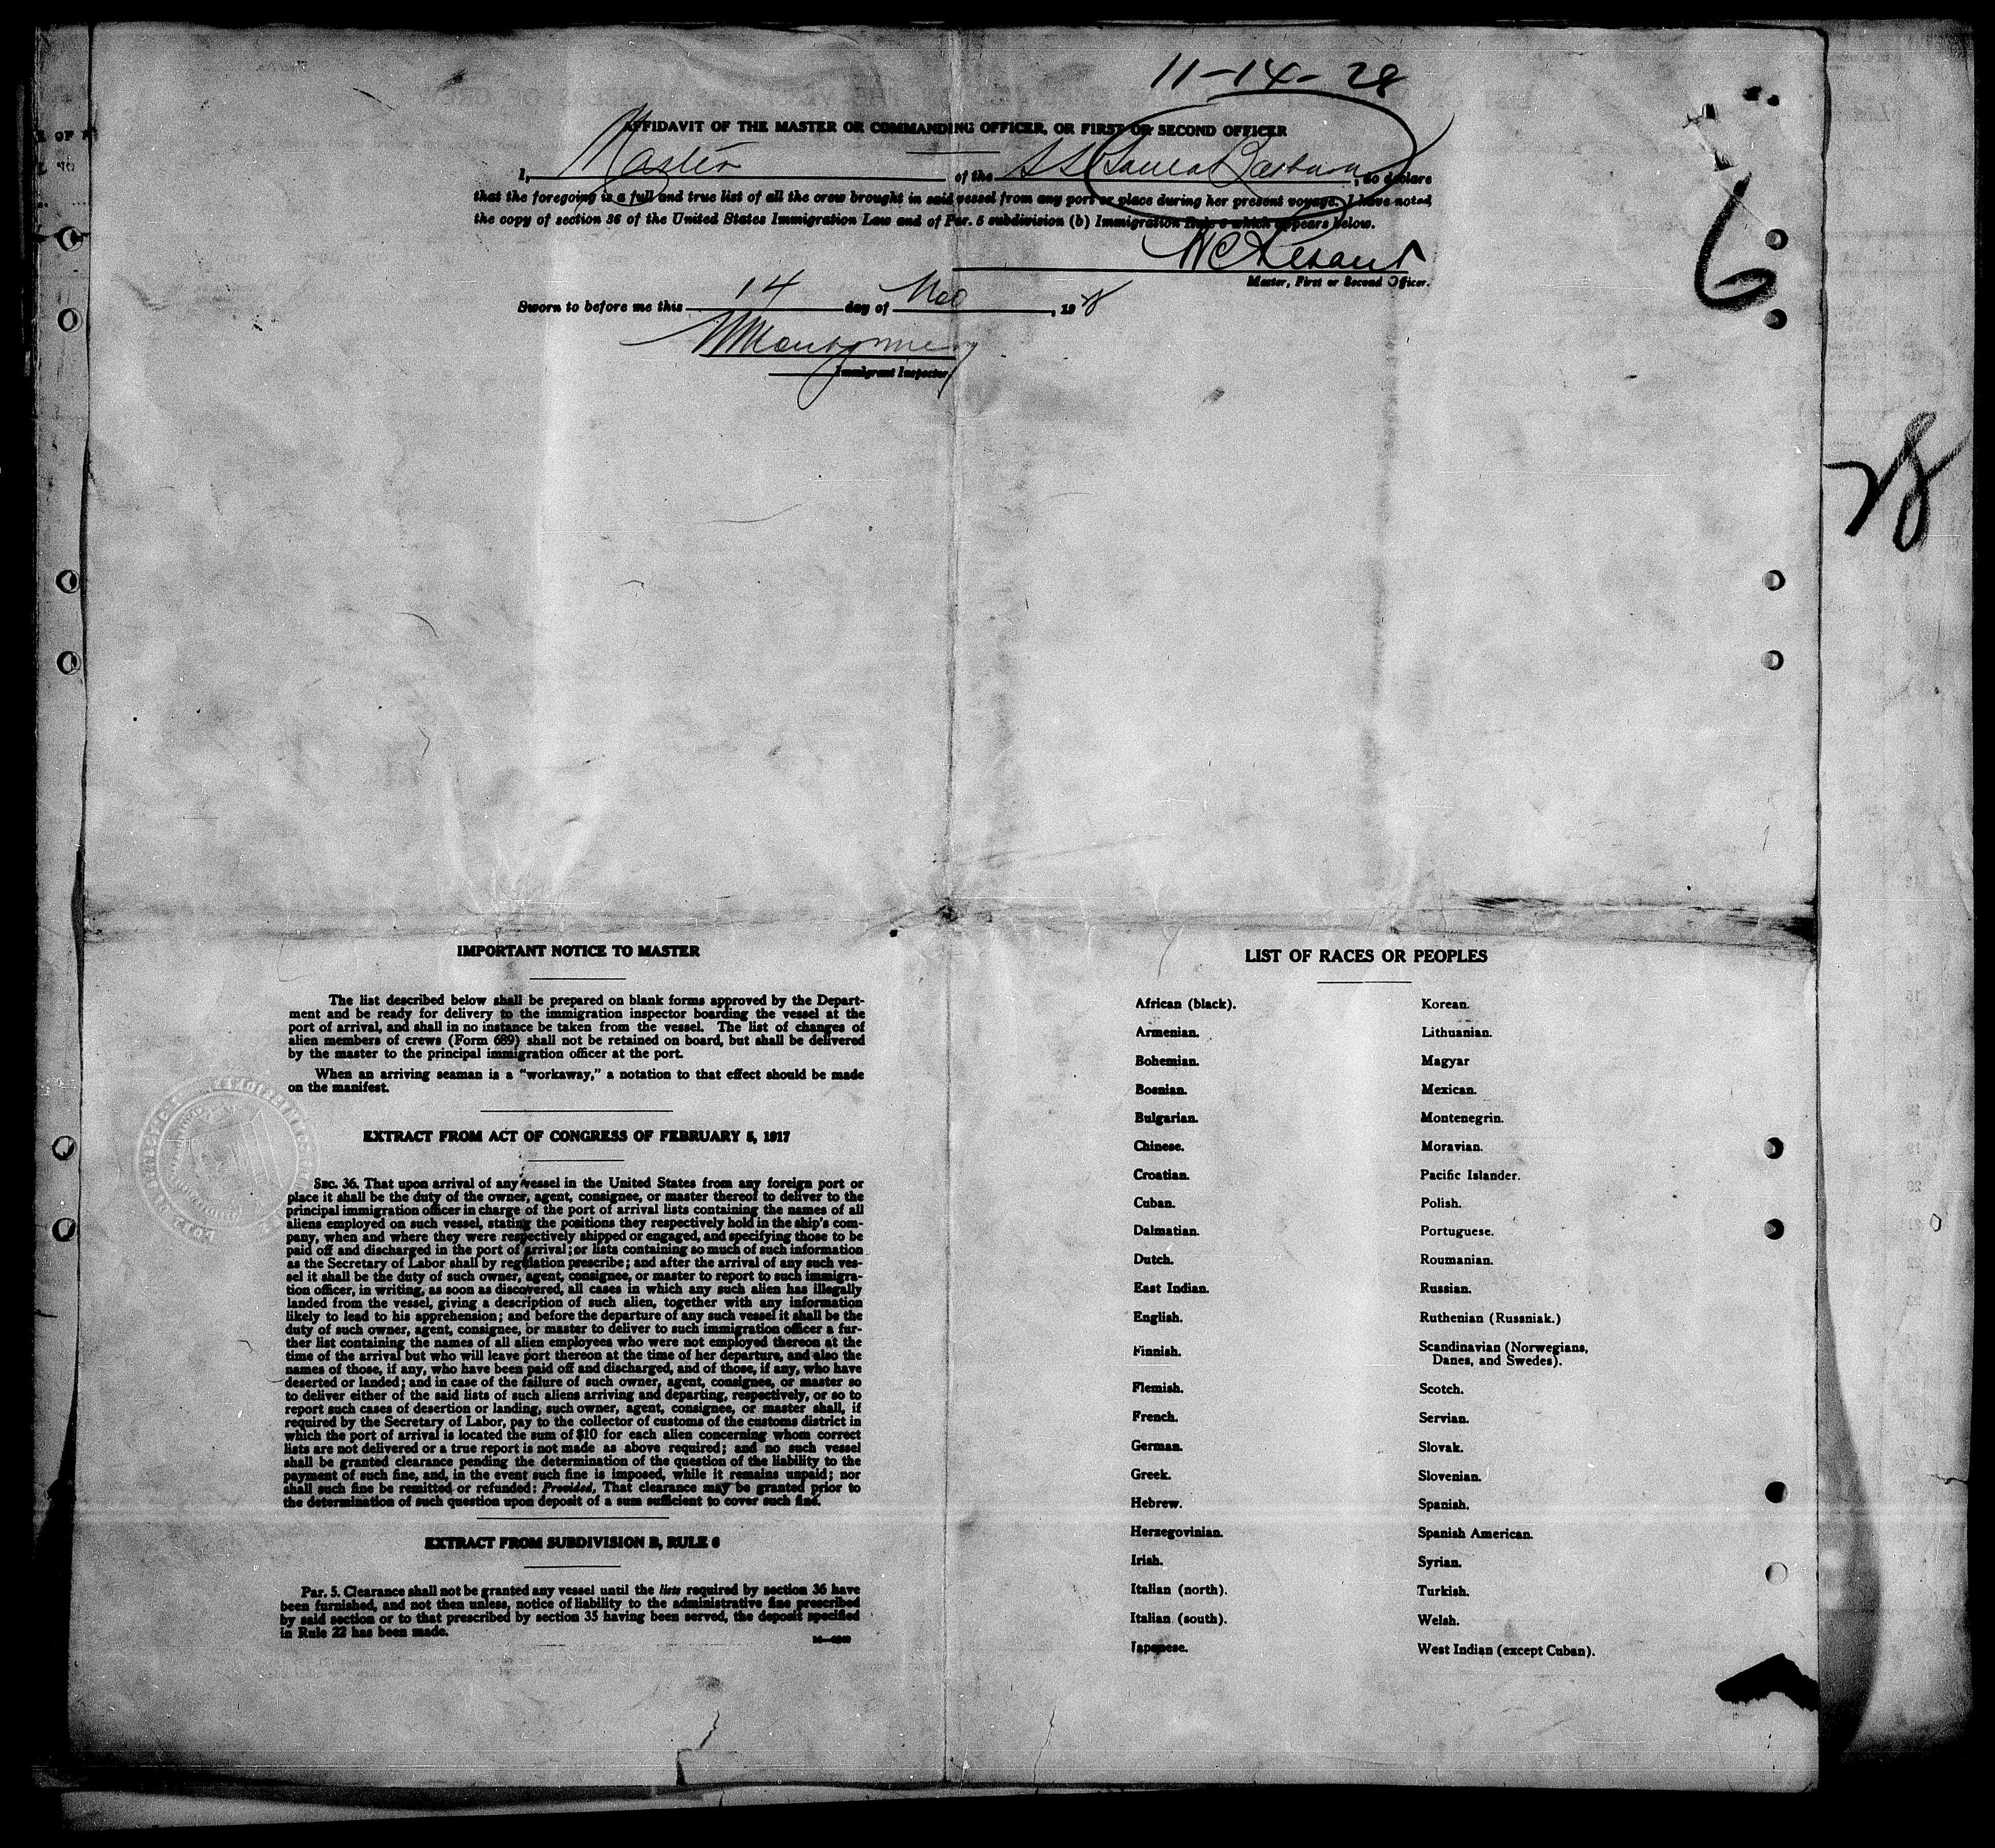 11-14-28
AFFIDAVIT OF THE MASTER OR COMMANDING OFFICER, OR FIRST OR SECOND OFFICER
I, Master of the SS Santa Barbara, do declare
that the foregoing is a full and true list of all the crew brought in said vessel from any port or place during her present voyage. I have noted
the copy of section 36 of the United States Immigration Law and of Par. 5 subdivision (b) Immigration Rule 6 which appears below.
Master, First or Second Officer.
Sworn to before me this 14 day of Nov, 1928
Immigrant Inspector.
6
28
IMPORTANT NOTICE TO MASTER
The list described below shall be prepared on blank forms approved by the Depart-
ment and be ready for delivery to the immigration inspector boarding the vessel at the
port of arrival, and shall in no instance be taken from the vessel. The list of changes of
alien members of crews (Form 689) shall not be retained on board, but shall be delivered
by the master to the principal immigration officer at the port.
When an arriving seaman is a "workaway," a notation to that effect should be made
on the manifest.
EXTRACT FROM ACT OF CONGRESS OF FEBRUARY 5, 1917
SEC. 36. That upon arrival of any vessel in the United States from any foreign port or
place it shall be the duty of the owner, agent, consignee, or master thereof to deliver to the
principal immigration officer in charge of the port of arrival lists containing the names of all
aliens employed on such vessel, stating the positions they respectively hold in the ship's com-
pany, when and where they were respectively shipped or engaged, and specifying those to be
paid off and discharged in the port of arrival; or lists containing so much of such information
as the Secretary of Labor shall by regulation prescribe; and after the arrival of any such ves-
sel it shall be the duty of such owner, agent, consignee, or master to report to such immigra-
tion officer, in writing, as soon as discovered, all cases in which any such alien has illegally
landed from the vessel, giving a description of such alien, together with any information
likely to lead to his apprehension; and before the departure of any such vessel it shall be the
duty of such owner, agent, consignee, or master to deliver to such immigration officer a fur-
ther list containing the names of all alien employees who were not employed thereon at the
time of the arrival but who will leave port thereon at the time of her departure, and also the
names of those, if any, who have been paid off and discharged, and of those, if any, who have
deserted or landed; and in case of the failure of such owner, agent, consignee, or master so
to deliver either of the said lists of such aliens arriving and departing, respectively, or so to
report such cases of desertion or landing, such owner, agent, consignee, or master shall, if
required by the Secretary of Labor, pay to the collector of customs of the customs district in
which the port of arrival is located the sum of $10 for each alien concerning whom correct
lists are not delivered or a true report is not made as above required; and no such vessel
shall be granted clearance pending the determination of the question of the liability to the
payment of such fine, and, in the event such fine is imposed, while it remains unpaid; nor
shall such fine be remitted or refunded: Provided, That clearance may be granted prior to
the determination of such question upon deposit of a sum sufficient to cover such fine.
EXTRACT FROM SUBDIVISION B, RULE 6
Par. 5. Clearance shall not be granted any vessel until the lists required by section 36 have
been furnished, and not then unless, notice of liability to the administrative fine prescribed
by said section or to that prescribed by section 35 having been served, the deposit specified
in Rule 22 has been made.
LIST OF RACES OR PEOPLES
African (black).
Armenian.
Bohemian.
Bosnian.
Bulgarian.
Chinese.
Croatian.
Cuban.
Dalmatian.
Dutch.
East Indian.
English.
Finnish.
Flemish.
French.
German.
Greek.
Hebrew.
Herzegovinian.
Irish.
Italian (north).
Italian (south).
Japanese.
Korean.
Lithuanian.
Magyar
Mexican.
Montenegrin.
Moravian.
Pacific Islander.
Polish.
Portuguese.
Roumanian.
Russian.
Ruthenian (Russniak.)
Scandinavian (Norwegians,
Danes, and Swedes).
Scotch.
Servian.
Slovak.
Slovenian.
Spanish.
Spanish American.
Syrian.
Turkish.
Welsh.
West Indian (except Cuban).